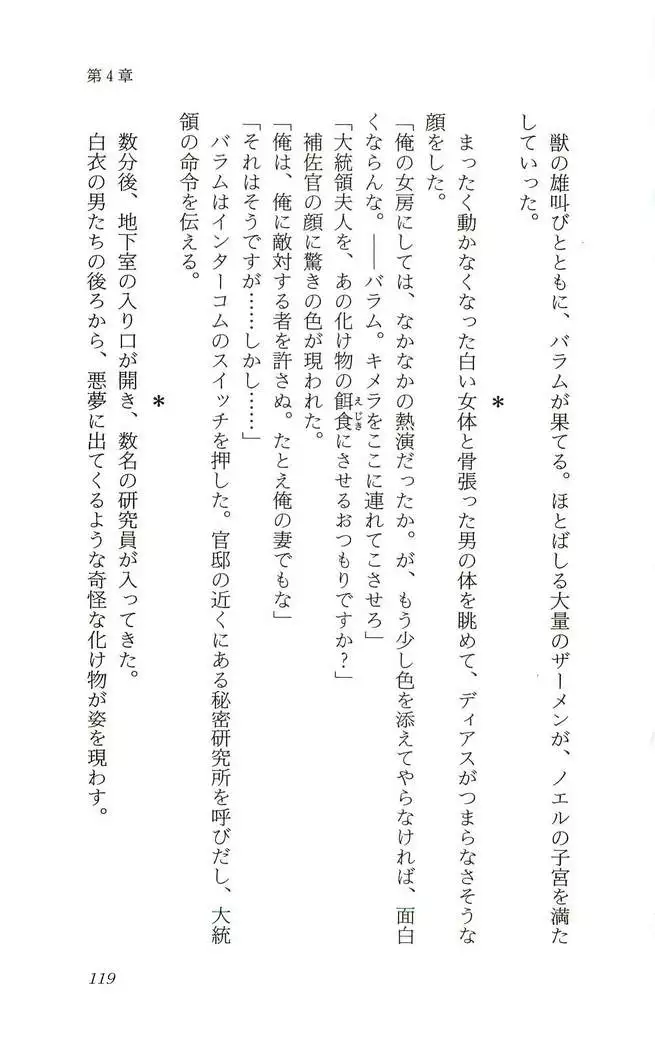 第4章
獣の雄叫びとともに、バラムが果てる。ほとばしる大量のザーメンが、ノエルの子宮を満た
していった。
*
まったく動かなくなった白い女体と骨張った男の体を眺めて、ディアスがつまらなさそうな
顔をした。
「俺の女房にしては、なかなかの熱演だったか。が、もう少し色を添えてやらなければ、面白
くならんな。――バラム。キメラをここに連れてこさせろ」
「大統領夫人を、あの化け物の餌食にさせるおつもりですか?」
えじき
補佐官の顔に驚きの色が現われた。
「俺は、俺に敵対する者を許さぬ。たとえ俺の妻でもな」
「それはそうですが……しかし……」
バラムはインターコムのスイッチを押した。官邸の近くにある秘密研究所を呼びだし、大統
領の命令を伝える。
*
数分後、地下室の入り口が開き、数名の研究員が入ってきた。
白衣の男たちの後ろから、悪夢に出てくるような奇怪な化け物が姿を現わす。
119